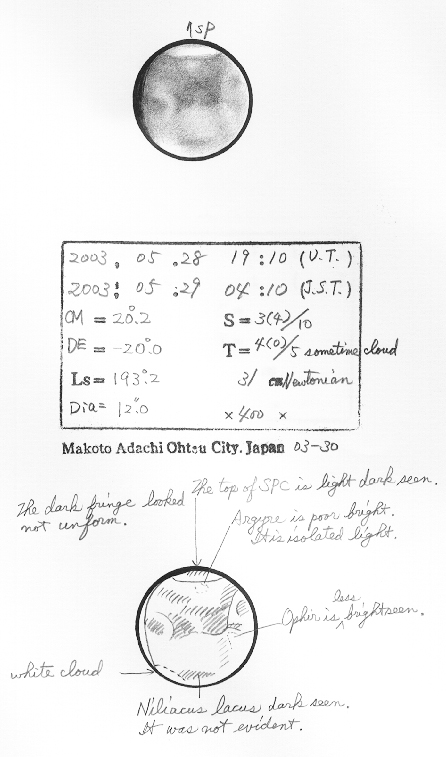 ↑SP
2003, 05 .28 19:10 (U.T.)
2003, 05 .29 04:10 (J.S.T.)
CM = 20°.2 S = 3(4)/10
DE = -20°.0 T = 4(0)/5 sometime cloud
Ls = 193°.2 31 cm Newtonian
Dia = 12".0 × 400 ×
Makoto Adachi Ohtsu City. Japan 03-30
The dark fringe looked
not uniform.
The top of SPC is light dark seen.
Argyre is poor bright.
It is isolated light.
Ophir is less bright seen.
white cloud
Niliacus lacus dark seen.
It was not evident.